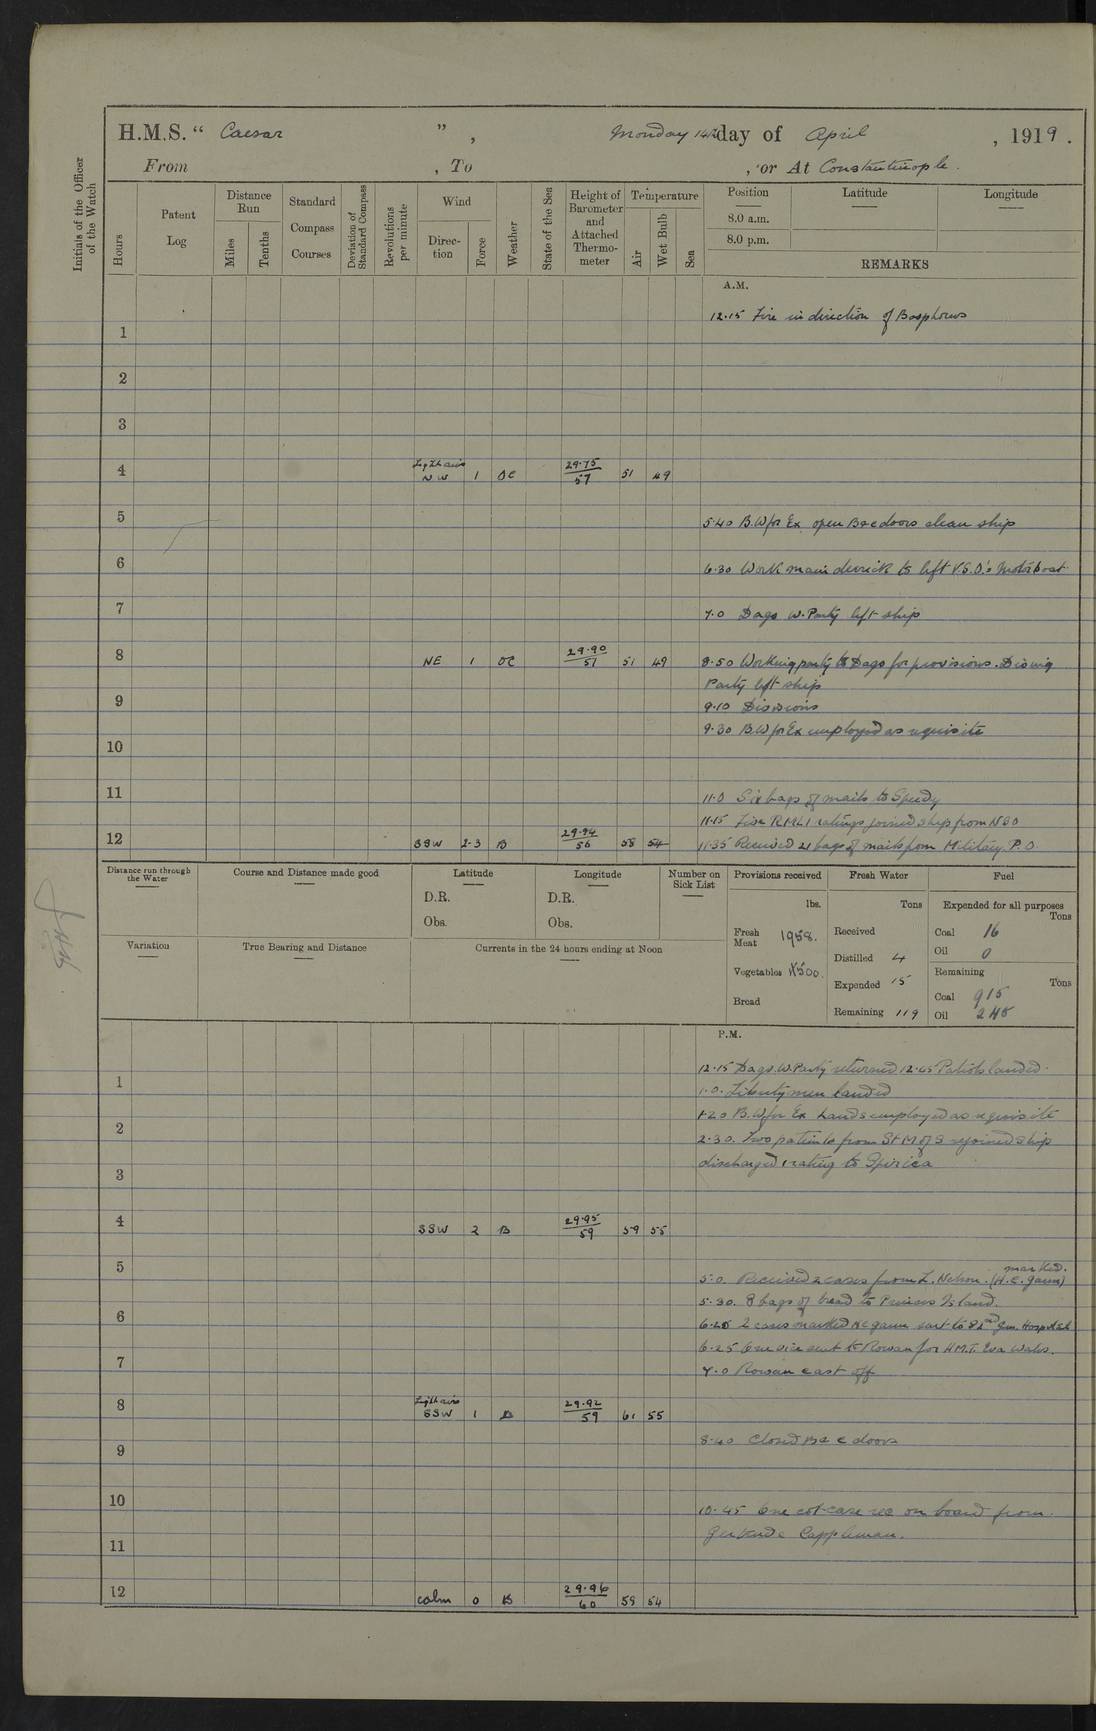 H.M.S. “ Caesar ” , Monday 14th day of April , 1919 .
From , To , or At Constantinople .
Initials of the Officer of the Watch
Hours
Patent Log
Distance Run
Miles
Tenths
Standard Compass Courses
Deviation of Standard Compass
Revolutions per minute
Wind
Direction
Force
Weather
State of the Sea
Height of Barometer and Attached Thermometer
Temperature
Air
Wet Bulb
Sea
Position
8.0 a.m.
8.0 p.m.
Latitude
Longitude
REMARKS
A.M.
12.15 Fire in direction of Bosphorus
1
2
3
4 Light airs NW 1 OC 29.75 57 51 49
5
5.40 B.W for Ex open B & C doors clean ship
6
6.30 Work main derrick to lift V.S.O.'s Motorboat
7
7.0 Dago W. Party left ship
8 NE 1 OC 29.90 51 51 49
8.50 Working party to Dago for provisions. Diving
Party left ship
9
9.10 Divisions
9.30 B.W for Ex employed as requisite
10
11
11.0 Six bags of mails to Speedy
11.15 Five RMLI ratings joined ship from NSO
12 SSW 2-3 B 29.94 56 58 54
11.35 Received 21 bags of mails from Military P.O.
Distance run through the Water
Course and Distance made good
Latitude
D.R.
Obs.
Longitude
D.R.
Obs.
Number on Sick List
Variation
True Bearing and Distance
Currents in the 24 hours ending at Noon
Provisions received
lbs.
Fresh Meat 1958.
Vegetables
Bread
Fresh Water
Tons
Received
Distilled 4
Expended 15
Remaining 119
Fuel
Expended for all purposes
Tons
Coal 16
Oil 0
Remaining
Tons
Coal 915
Oil 245
P.M.
12.15 Dago. W. Party returned 12.45 Patrols landed.
1
1.0. Liberty men landed
1.20 B.W for Ex Hands employed as requisite
2
2.30. Two patients from rejoined ship
discharged 1 rating to
3
4 SSW 2 B 29.95 59 59 55
5
5.0. Received 2 cases from L. Nelson. (H.E. gaun) marked.
5.30. 8 bags of bread to Princes Island.
6
6.25 2 cases marked sent to 82nd Gen. Hospital
6.25 One sent to Rowan for H.M.T. Eva Wales.
7
7.0 Rowan cast off
8 Light airs SSW 1 B 29.92 59 61 55
8.40 Closed B & C doors
9
10
10.45 One cot-case rec on board from
Gertrude Cappleman.
11
12 calm 0 B 29.96 60 59 54